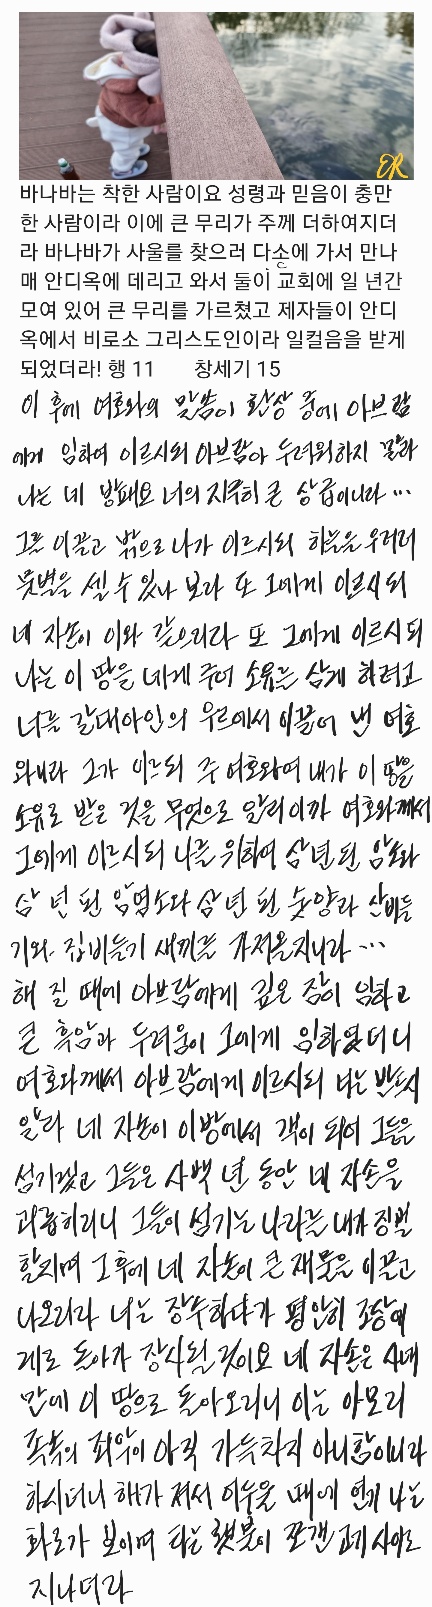 ER
바나바는 착한 사람이요 성령과 믿음이 충만
한 사람이라 이에 큰 무리가 주께 더하여지더
라 바나바가 사울를 찾으러 다소에 가서 만나
매 안디옥에 데리고 와서 둘이 교회에 일 년간
모여 있어 큰 무리를 가르쳤고 제자들이 안디
옥에서 비로소 그리스도인이라 일컬음을 받게
되었더라! 행 11 창세기 15
이 후에 여호와의 말씀이 환상 중에 아브람
에게 임하여 이르시되 아브람아 두려워하지 말라
나는 네 방패요 너의 지극히 큰 상급이니라 ···
그를 이끌고 밖으로 나가 이르시되 하늘을 우러러
뭇별을 셀 수 있나 보라 또 그에게 이르시되
네 자손이 이와 같으리라 또 그에게 이르시되
나는 이 땅을 네게 주어 소유를 삼게 하려고
너를 갈대아인의 우르에서 이끌어 낸 여호
와니라 그가 이르되 주 여호와여 내가 이 땅을
소유로 받을 것을 무엇으로 알리이까 여호와께서
그에게 이르시되 나를 위하여 삼 년 된 암소와
삼 년 된 암염소와 삼 년 된 숫양과 산비둘
기와 집비둘기 새끼를 가져올지니라 ···
해 질 때에 아브람에게 깊은 잠이 임하고
큰 흑암과 두려움이 그에게 임하였더니
여호와께서 아브람에게 이르시되 너는 반드시
알라 네 자손이 이방에서 객이 되어 그들을
섬기겠고 그들은 사백 년 동안 네 자손을
괴롭히리니 그들이 섬기는 나라를 내가 징벌
할지며 그 후에 네 자손이 큰 재물을 이끌고
나오리라 너는 장수하다가 평안히 조상에
게로 돌아가 장사될 것이요 네 자손은 4대
만에 이 땅으로 돌아오리니 이는 아모리
족속의 죄악이 아직 가득차지 아니함이니라
하시더니 해가 져서 어두울 때에 연기 나는
화로가 보이며 타는 횃불이 쪼갠 고기 사이로
지나더라